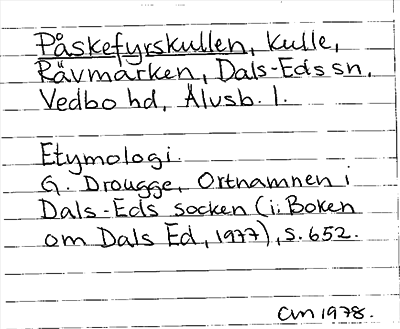 Påskefyrskullen, kulle,
Rävmarken, Dals-Eds sn.
Vedbo hd, Älvsb. l.
Etymologi.
G. Drougge, Ortnamnen i
Dals-Eds socken (i: Boken
om Dals Ed, 1977), s. 652.
CM 1978.